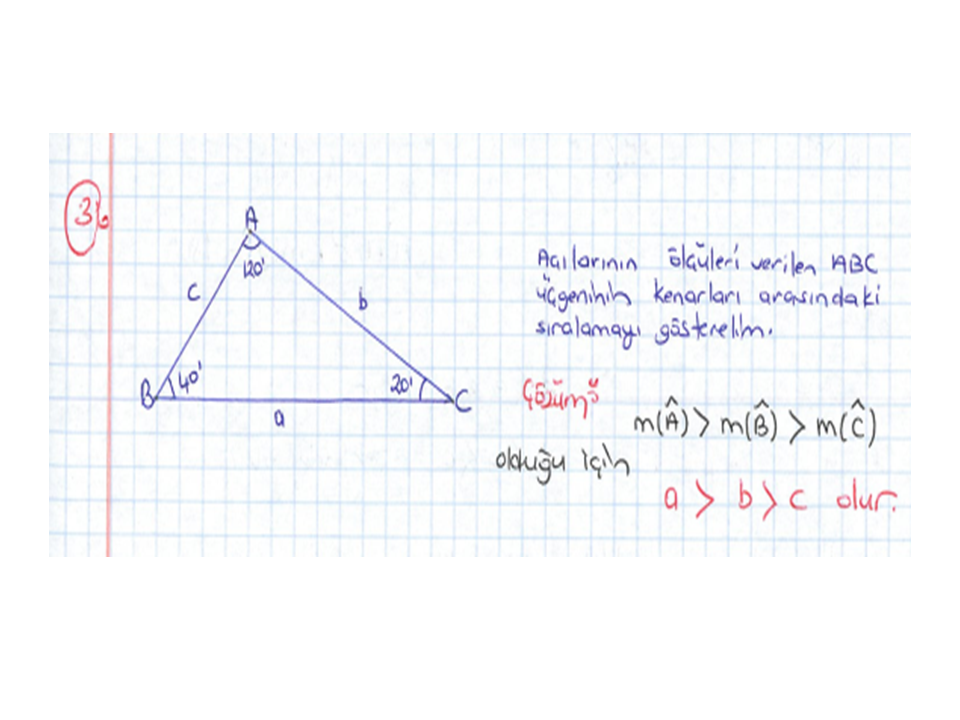 3)
A
120'
c
b
B
40'
20'
C
a
Açılarının ölçüleri verilen ABC
üçgeninin kenarları arasındaki
sıralamayı gösterelim.
Çözüm:
m(Â) > m(B̂) > m(Ĉ)
olduğu için
a > b > c olur.